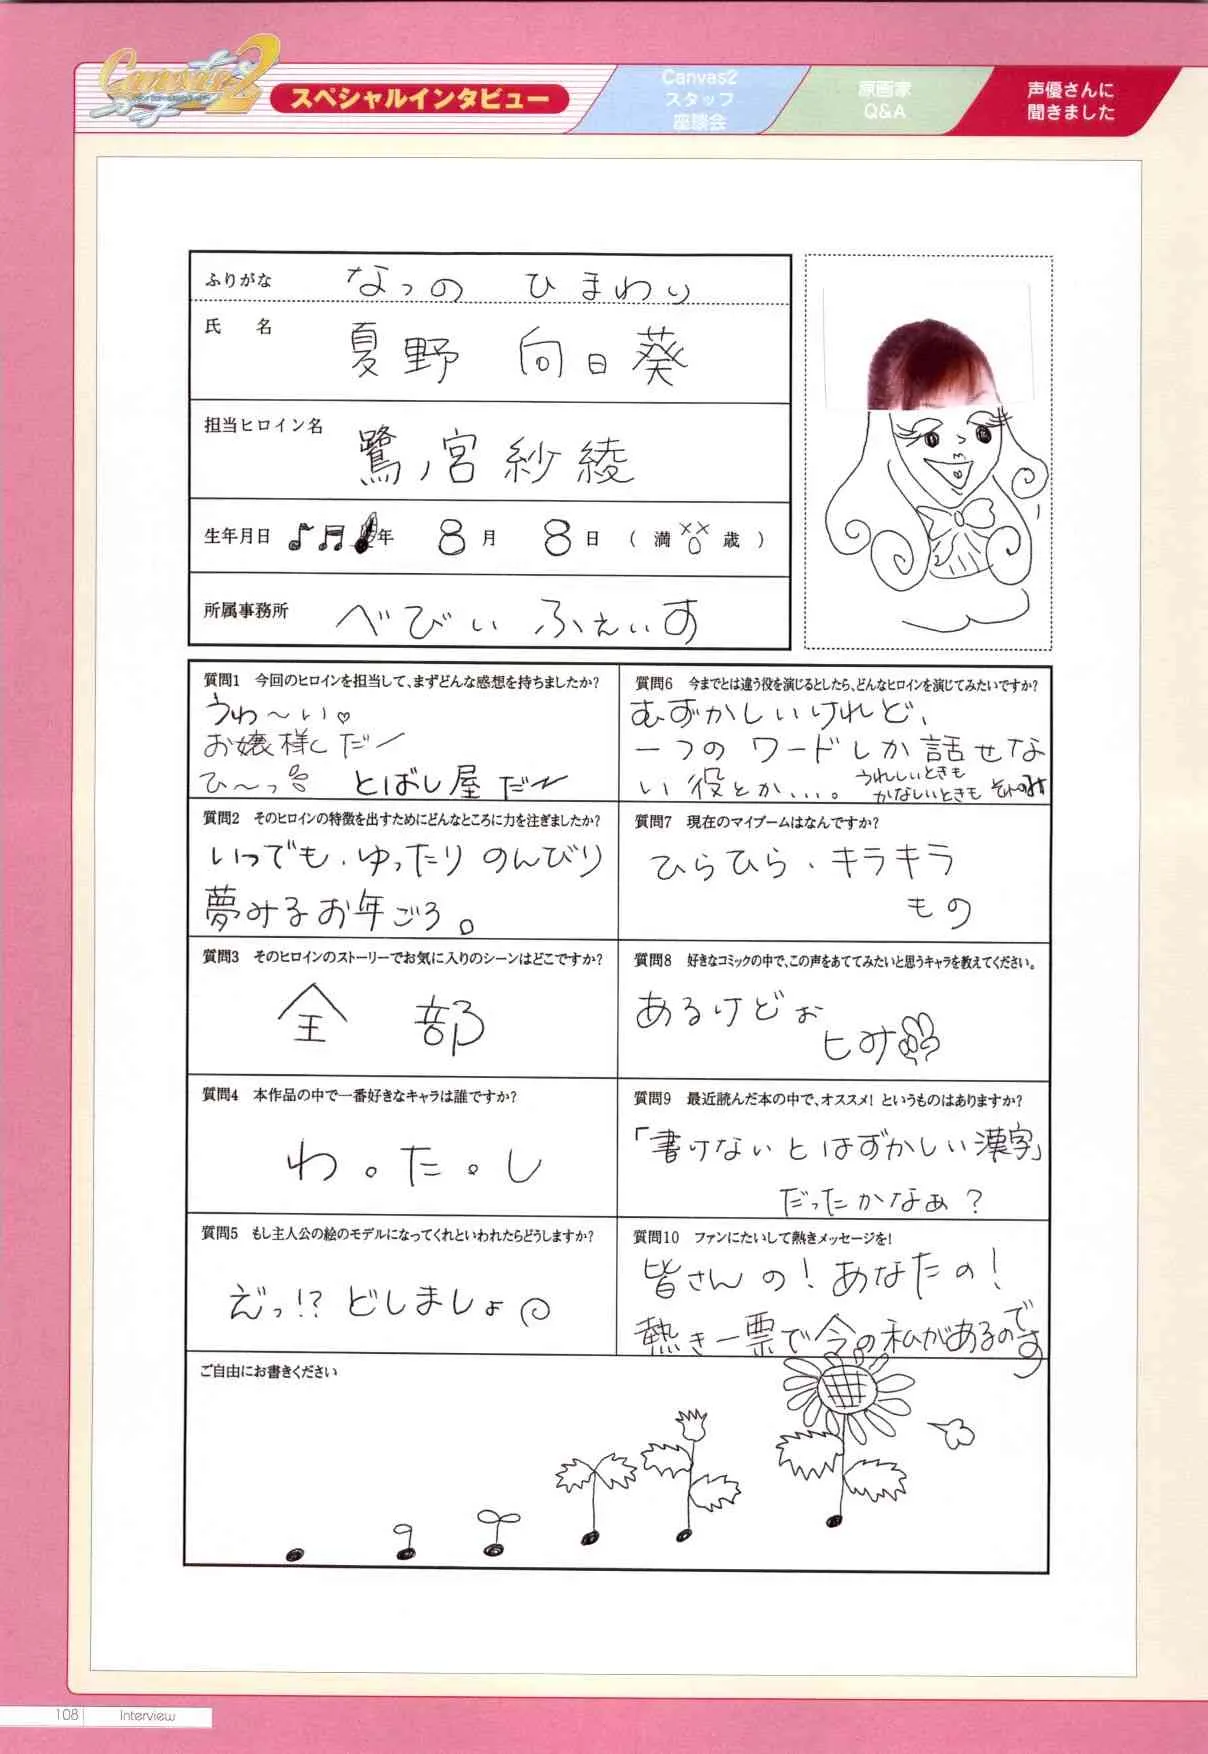 Canvas2
スペシャルインタビュー
Canvas2
スタッフ
座談会
原画家
Q&A
声優さんに
聞きました
ふりがな なつの ひまわり
氏 名 夏野 向日葵
担当ヒロイン名 鷺ノ宮紗綾
生年月日 ♪♬年 8月 8日 ( 満 歳 )
所属事務所 べびぃ ふぇいす
質問1 今回のヒロインを担当して、まずどんな感想を持ちましたか?
うわ〜い♡
お嬢様だー
ひ〜っ とばし屋だー
質問2 そのヒロインの特徴を出すためにどんなところに力を注ぎましたか?
いつでも、ゆったり のんびり
夢みるお年ごろ。
質問3 そのヒロインのストーリーでお気に入りのシーンはどこですか?
全 部
質問4 本作品の中で一番好きなキャラは誰ですか?
わ。た。し
質問5 もし主人公の絵のモデルになってくれといわれたらどうしますか?
えっ!? どしましょ
質問6 今までとは違う役を演じるとしたら、どんなヒロインを演じてみたいですか?
むずかしいけれど、
一つの ワードしか話せな
い役とか...。 うれしいときも
かなしいときも そのみ
質問7 現在のマイブームはなんですか?
ひらひら、キラキラ
もの
質問8 好きなコミックの中で、この声をあててみたいと思うキャラを教えてください。
あるけどぉ
ヒミ
質問9 最近読んだ本の中で、オススメ! というものはありますか?
「書けないとはずかしい漢字」
だったかなぁ?
質問10 ファンにたいして熱きメッセージを!
皆さんの!あなたの!
熱き一票で今の私があるのです
ご自由にお書きください
108 Interview